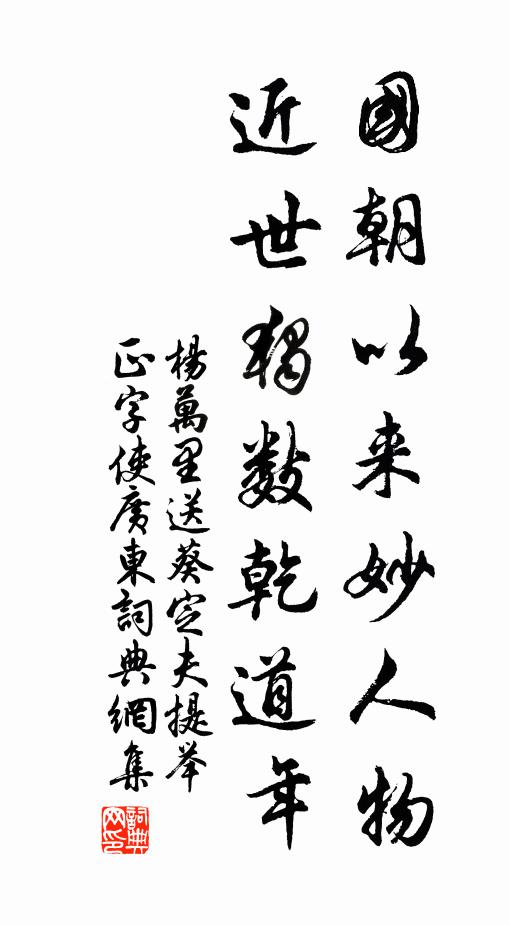 國朝以来妙人物
近世獨数乾道年
楊萬里送葵定夫提举
正字使廣東詞典網集
詞典网印